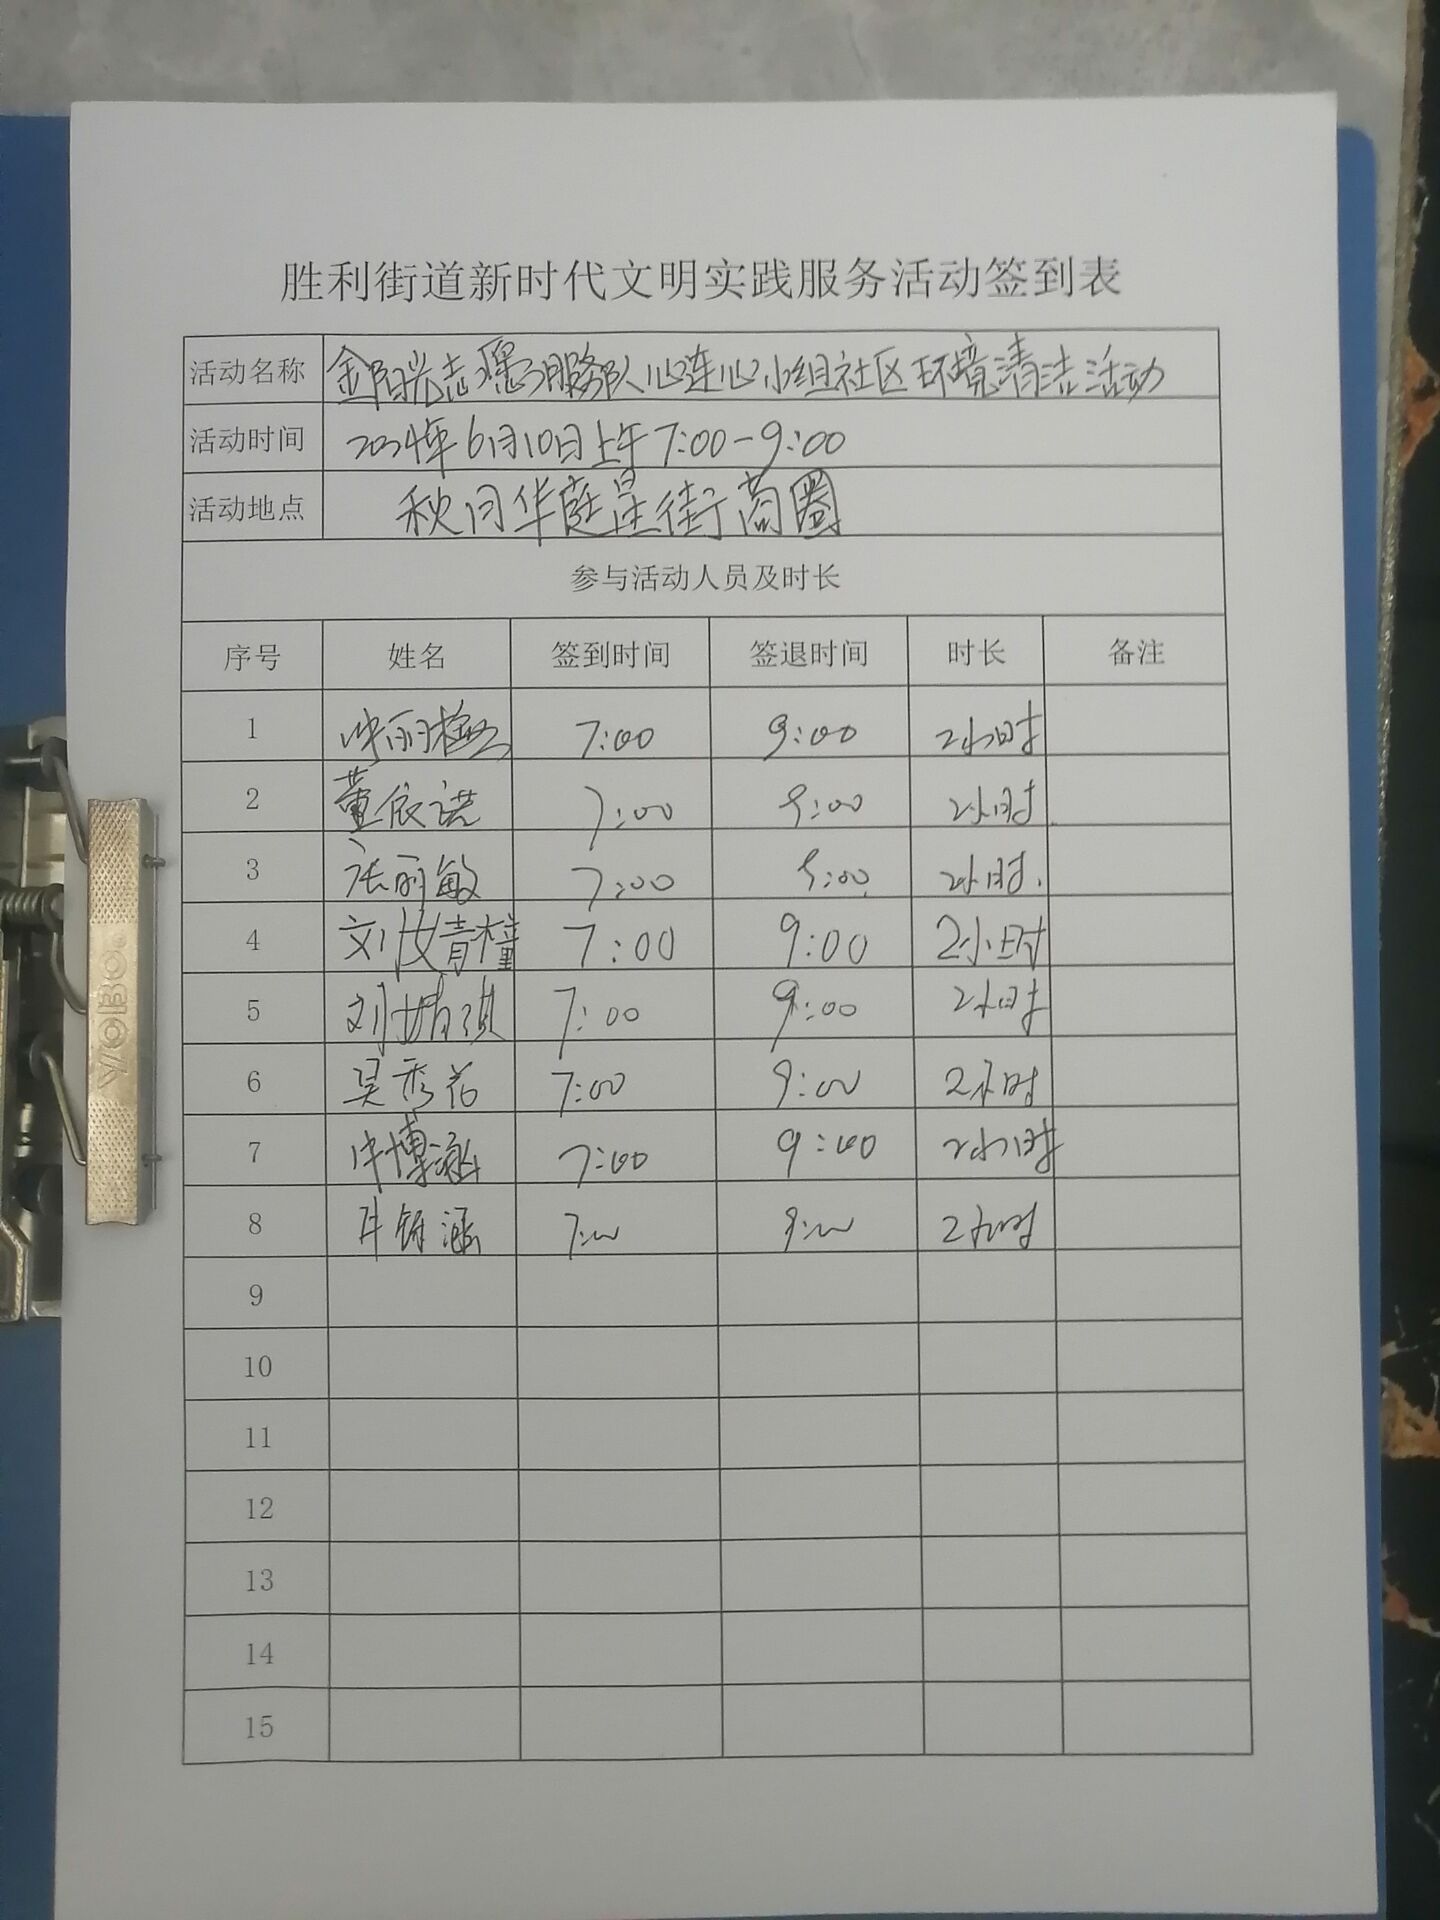 胜利街道新时代文明实践服务活动签到表
活动名称 金阳光志愿服务队心连心小组社区环境清洁活动
活动时间 2024年6月10日上午7:00-9:00
活动地点 秋月华庭星街商圈
参与活动人员及时长
序号 姓名 签到时间 签退时间 时长 备注
1 7:00 9:00 2小时
2 董依诺 7:00 9:00 2小时
3 张丽敏 7:00 9:00 2小时.
4 刘汝青橦 7:00 9:00 2小时
5 刘婧琪 7:00 9:00 2小时
6 吴秀花 7:00 9:00 2小时
7 博涵 7:00 9:00 2小时
8 涵 7:00 9:00 2小时
9
10
11
12
13
14
15
YOBO